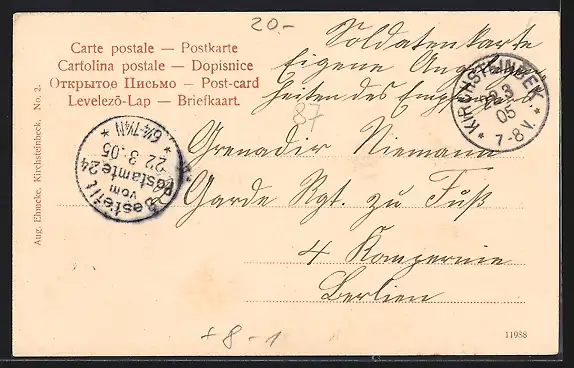 20.-
Carte postale — Postkarte
Cartolina postale — Dopisnice
Открытое Письмо — Post-card
Levelező-Lap — Briefkaart.
Soldatenkarte
Eigene Angelegen
heiten des Empfängers
KIRCHSTEINBEK.
22.3
05
* 7-8 V. *
87
Bestellt
vom
Postamte 24
22.3.05
* 6¼-7¼N *
Grenadir Niemann
Garde Rgt. zu Fuß
4 Kompernie
Berlien
Aug. Ehmcke, Kirchsteinbeck. No. 2.
+8-1
11988